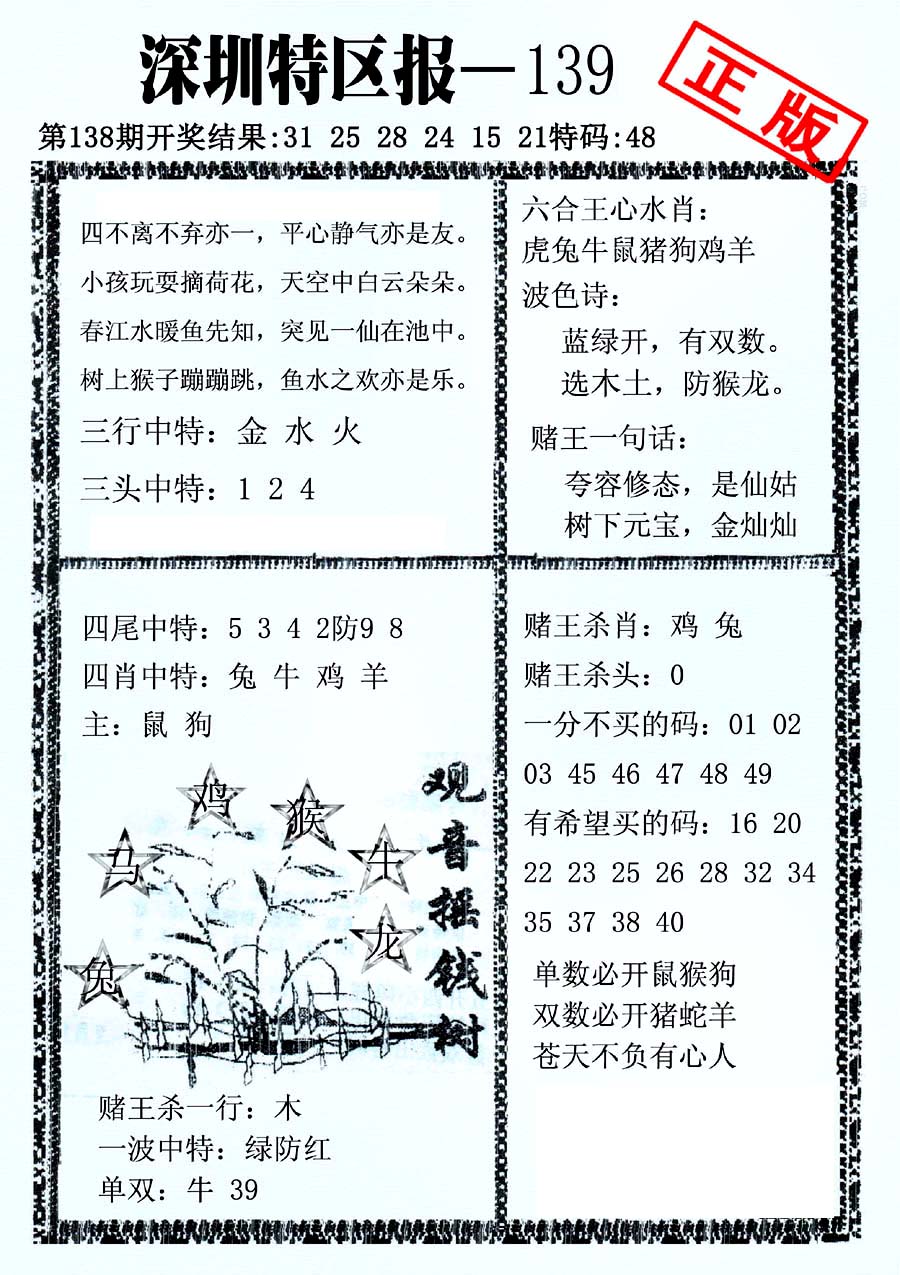 深圳特区报—139
正版
第138期开奖结果:31 25 28 24 15 21特码:48
四不离不弃亦一，平心静气亦是友。
小孩玩耍摘荷花，天空中白云朵朵。
春江水暖鱼先知，突见一仙在池中。
树上猴子蹦蹦跳，鱼水之欢亦是乐。
三行中特：金 水 火
三头中特：1 2 4
六合王心水肖：
虎兔牛鼠猪狗鸡羊
波色诗：
蓝绿开，有双数。
选木土，防猴龙。
赌王一句话：
夸容修态，是仙姑
树下元宝，金灿灿
四尾中特：5 3 4 2防9 8
四肖中特：兔 牛 鸡 羊
主：鼠 狗
鸡
猴
马
牛
龙
兔
观音摇钱树
赌王杀一行：木
一波中特：绿防红
单双：牛 39
赌王杀肖：鸡 兔
赌王杀头：0
一分不买的码：01 02
03 45 46 47 48 49
有希望买的码：16 20
22 23 25 26 28 32 34
35 37 38 40
单数必开鼠猴狗
双数必开猪蛇羊
苍天不负有心人